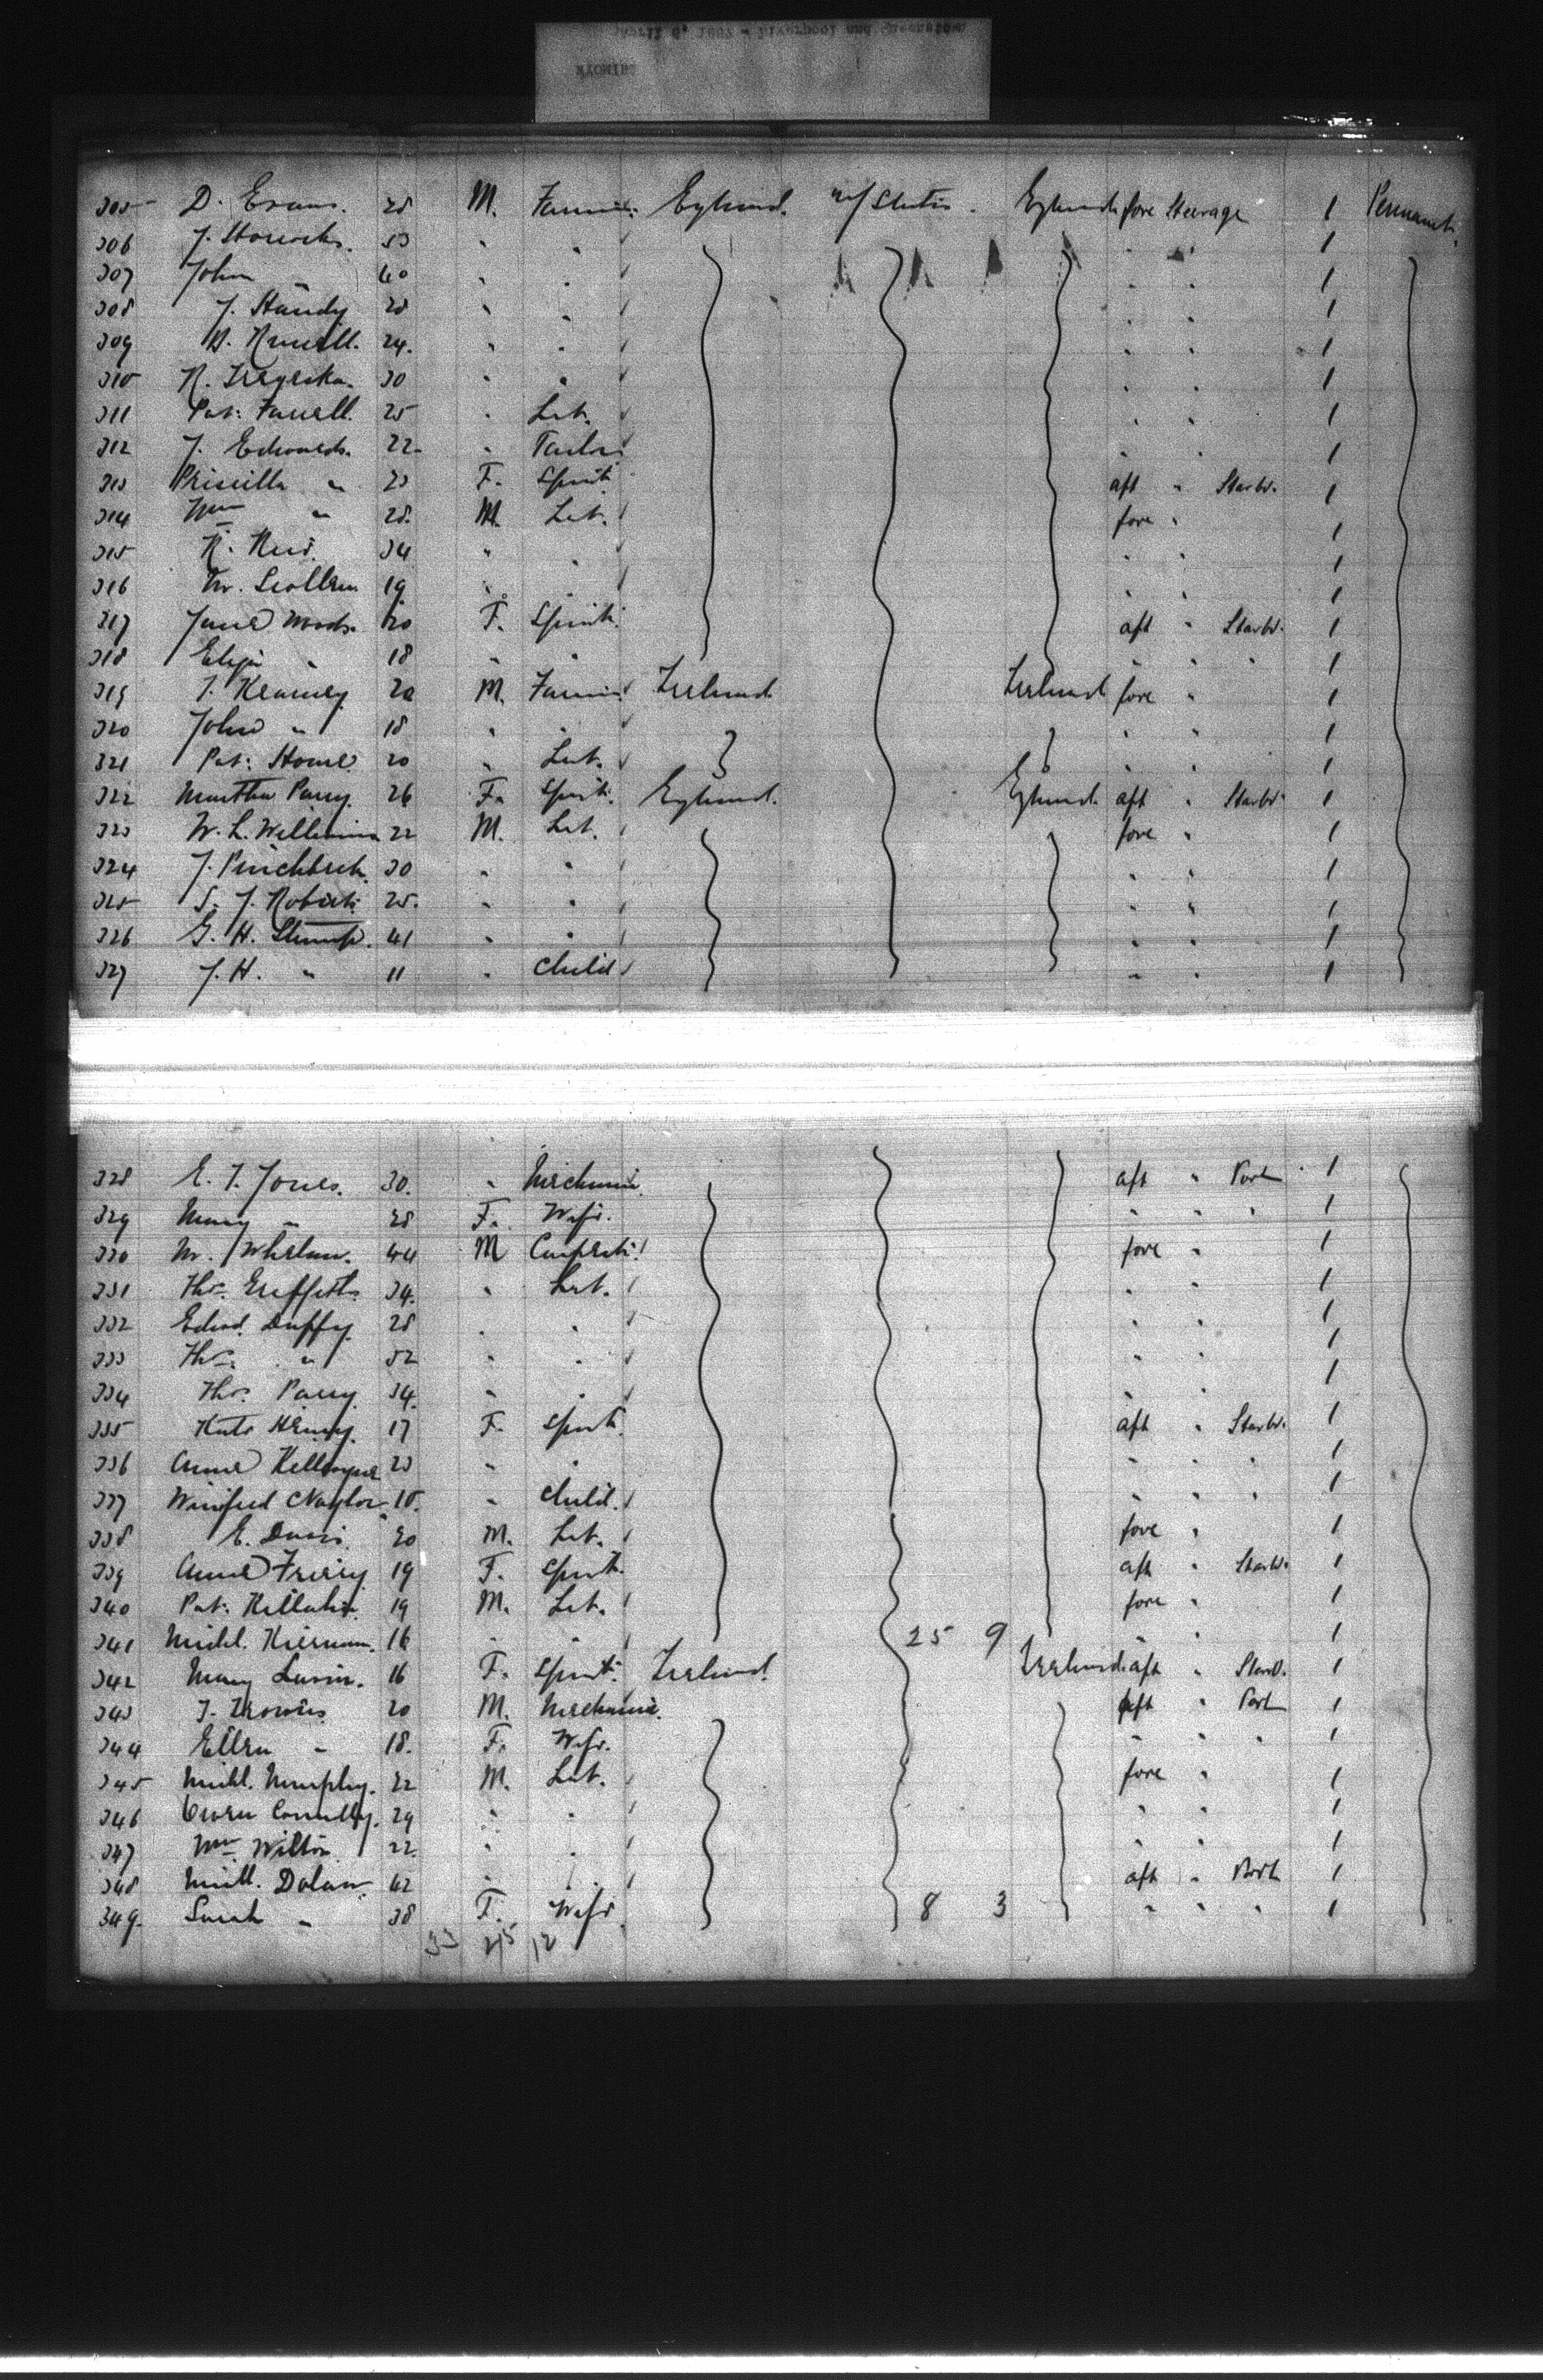 April 6, 1887 - Liverpool and Queenstown
WYOMING
305 D. Evans. 28 M. Farmer England. U/States. England fore Steerage 1 Permanent.
306 J. 53 " " " " 1
307 John " 40 " " " " 1
308 J. Handy 28 " " " " 1
309 24. " " " " 1
310 R. 30 " " " " 1
311 Pat: Farrell. 25 " Lab. " " 1
312 J. Edwards. 22. " Tailor " " 1
313 Priscilla " 23 F. Spinst. aft " Starbd. 1
314 Wm " 28. M. Lab. fore " 1
315 R. 34 " " " " 1
316 19 " " " " 1
317 Jane Woods. 20 F. Spinst. aft " Starbd. 1
318 Eliza " 18 " " " " " 1
319 T. Kearney 20 M. Farmer Ireland Ireland fore " 1
320 John " 18 " " " " 1
321 Pat: 20 " Lab. " " 1
322 Martha Parry. 26 F. Spinst. England. England. aft " Starbd. 1
323 W. L. Williams 22 M. Lab. fore " 1
324 J. Pinchbeck. 30 " " " " 1
325 S. J. Roberts. 25. " " " " 1
326 G. H. 41 " " " " 1
327 J. H. " 11 " Child " " 1
328 E. T. Jones. 30. " Mechanic aft " Port 1
329 Mary " 28 F. Wife. " " " 1
330 M. Whelan. 44 M Carpenter fore " 1
331 Thos. Griffith. 34. " Lab. " " 1
332 Edwd. Duffy. 28 " " " " 1
333 Thos. " 52 " " " " 1
334 Thos. Parry 34. " " " 1
335 Kate Henry. 17 F. Spinst. aft " Starbd. 1
336 Anne 23 " " " " " 1
337 Winifred Naylor 10. " Child. " " " 1
338 E. Davis. 20 M. Lab. fore " 1
339 Anne 19 F. Spinst. aft " Starbd. 1
340 Pat: 19 M. Lab. fore " 1
341 Michl. Kiernan. 16 " " 25 9 " " 1
342 Mary Lavin. 16 F. Spinst. Ireland. Ireland. aft " Starbd. 1
343 T. 20 M. Mechanic. aft " Port 1
344 Ellen " 18. F. Wife. " " "
345 Michl. Murphy. 22 M. Lab. fore " 1
346 Owen Connelly. 29 " " " " 1
347 Wm Wilton 22. " " " " 1
348 Michl. Dolan. 42 " " aft " Port 1
349. Sarah " 38 F. Wife 8 3 " " " 1
33 12